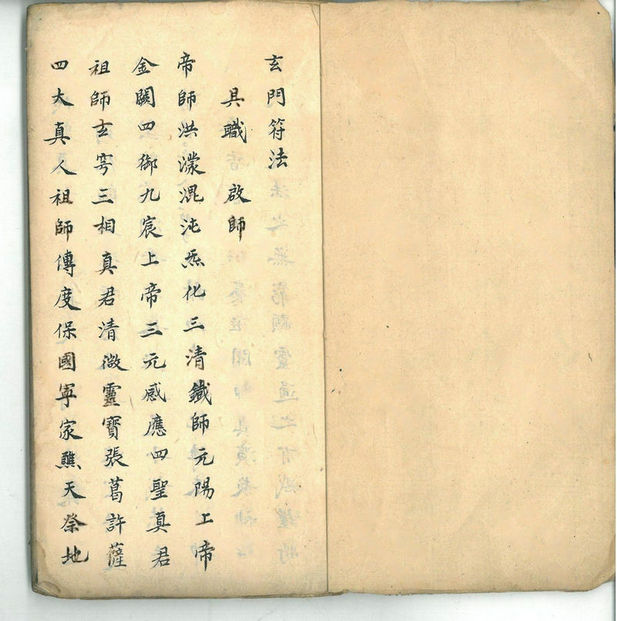 玄門符法
具職 啟師
帝師洪濛混沌炁化三清鐵師元陽上帝
金闕四御九宸上帝三元感應四聖真君
祖師玄穹三相真君清微靈寶張葛許薩
四大真人祖師傳度保國寧家醮天祭地